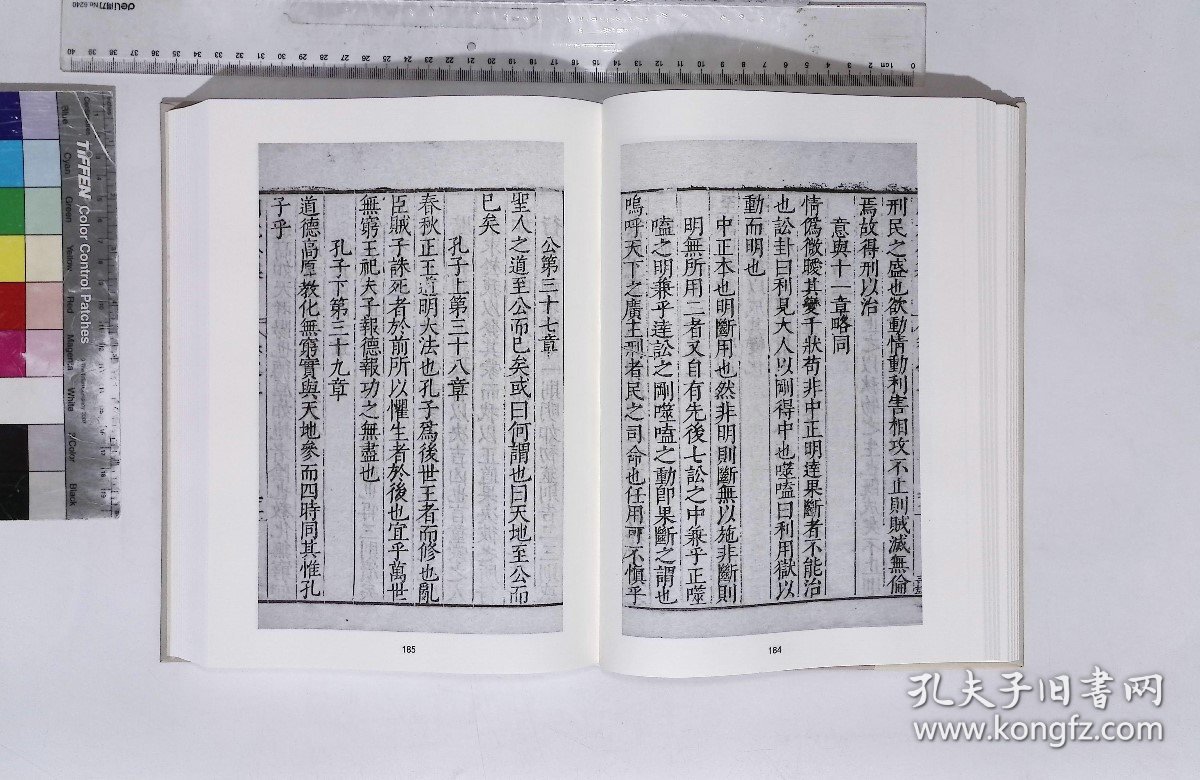 刑民之盛也欲動情動利害相攻不止則賊滅無倫
焉故得刑以治
意與十一章略同
情僞微曖其變千狀苟非中正明達果斷者不能治
也訟卦曰利見大人以剛得中也噬嗑曰利用獄以
動而明也
中正本也明斷用也然非明則斷無以施非斷則
明無所用二者又自有先後七訟之中兼乎正噬
嗑之明兼乎達訟之剛噬嗑之動即果斷之謂也
嗚呼天下之廣主刑者民之司命也任用可不慎乎
184
公第三十七章
聖人之道至公而已矣或曰何謂也曰天地至公而
已矣
孔子上第三十八章
春秋正王道明大法也孔子爲後世王者而修也亂
臣賊子誅死者於前所以懼生者於後也宜乎萬世
無窮王祀夫子報德報功之無盡也
孔子下第三十九章
道德高厚教化無窮實與天地參而四時同其惟孔
子乎
185
deli得力 No.6240
0 1cm 2 3 4 5 6 7 8 9 10 11 12 13 14 15 16 17 18 19 20 21 22 23 24 25 26 27 28 29 30 31 32 33 34 35 36 37 38 39 40
TIFFEN Color Control Patches
Blue
Cyan
Green
Yellow
Red
Magenta
White
3/Color
Black
孔夫子旧书网
www.kongfz.com